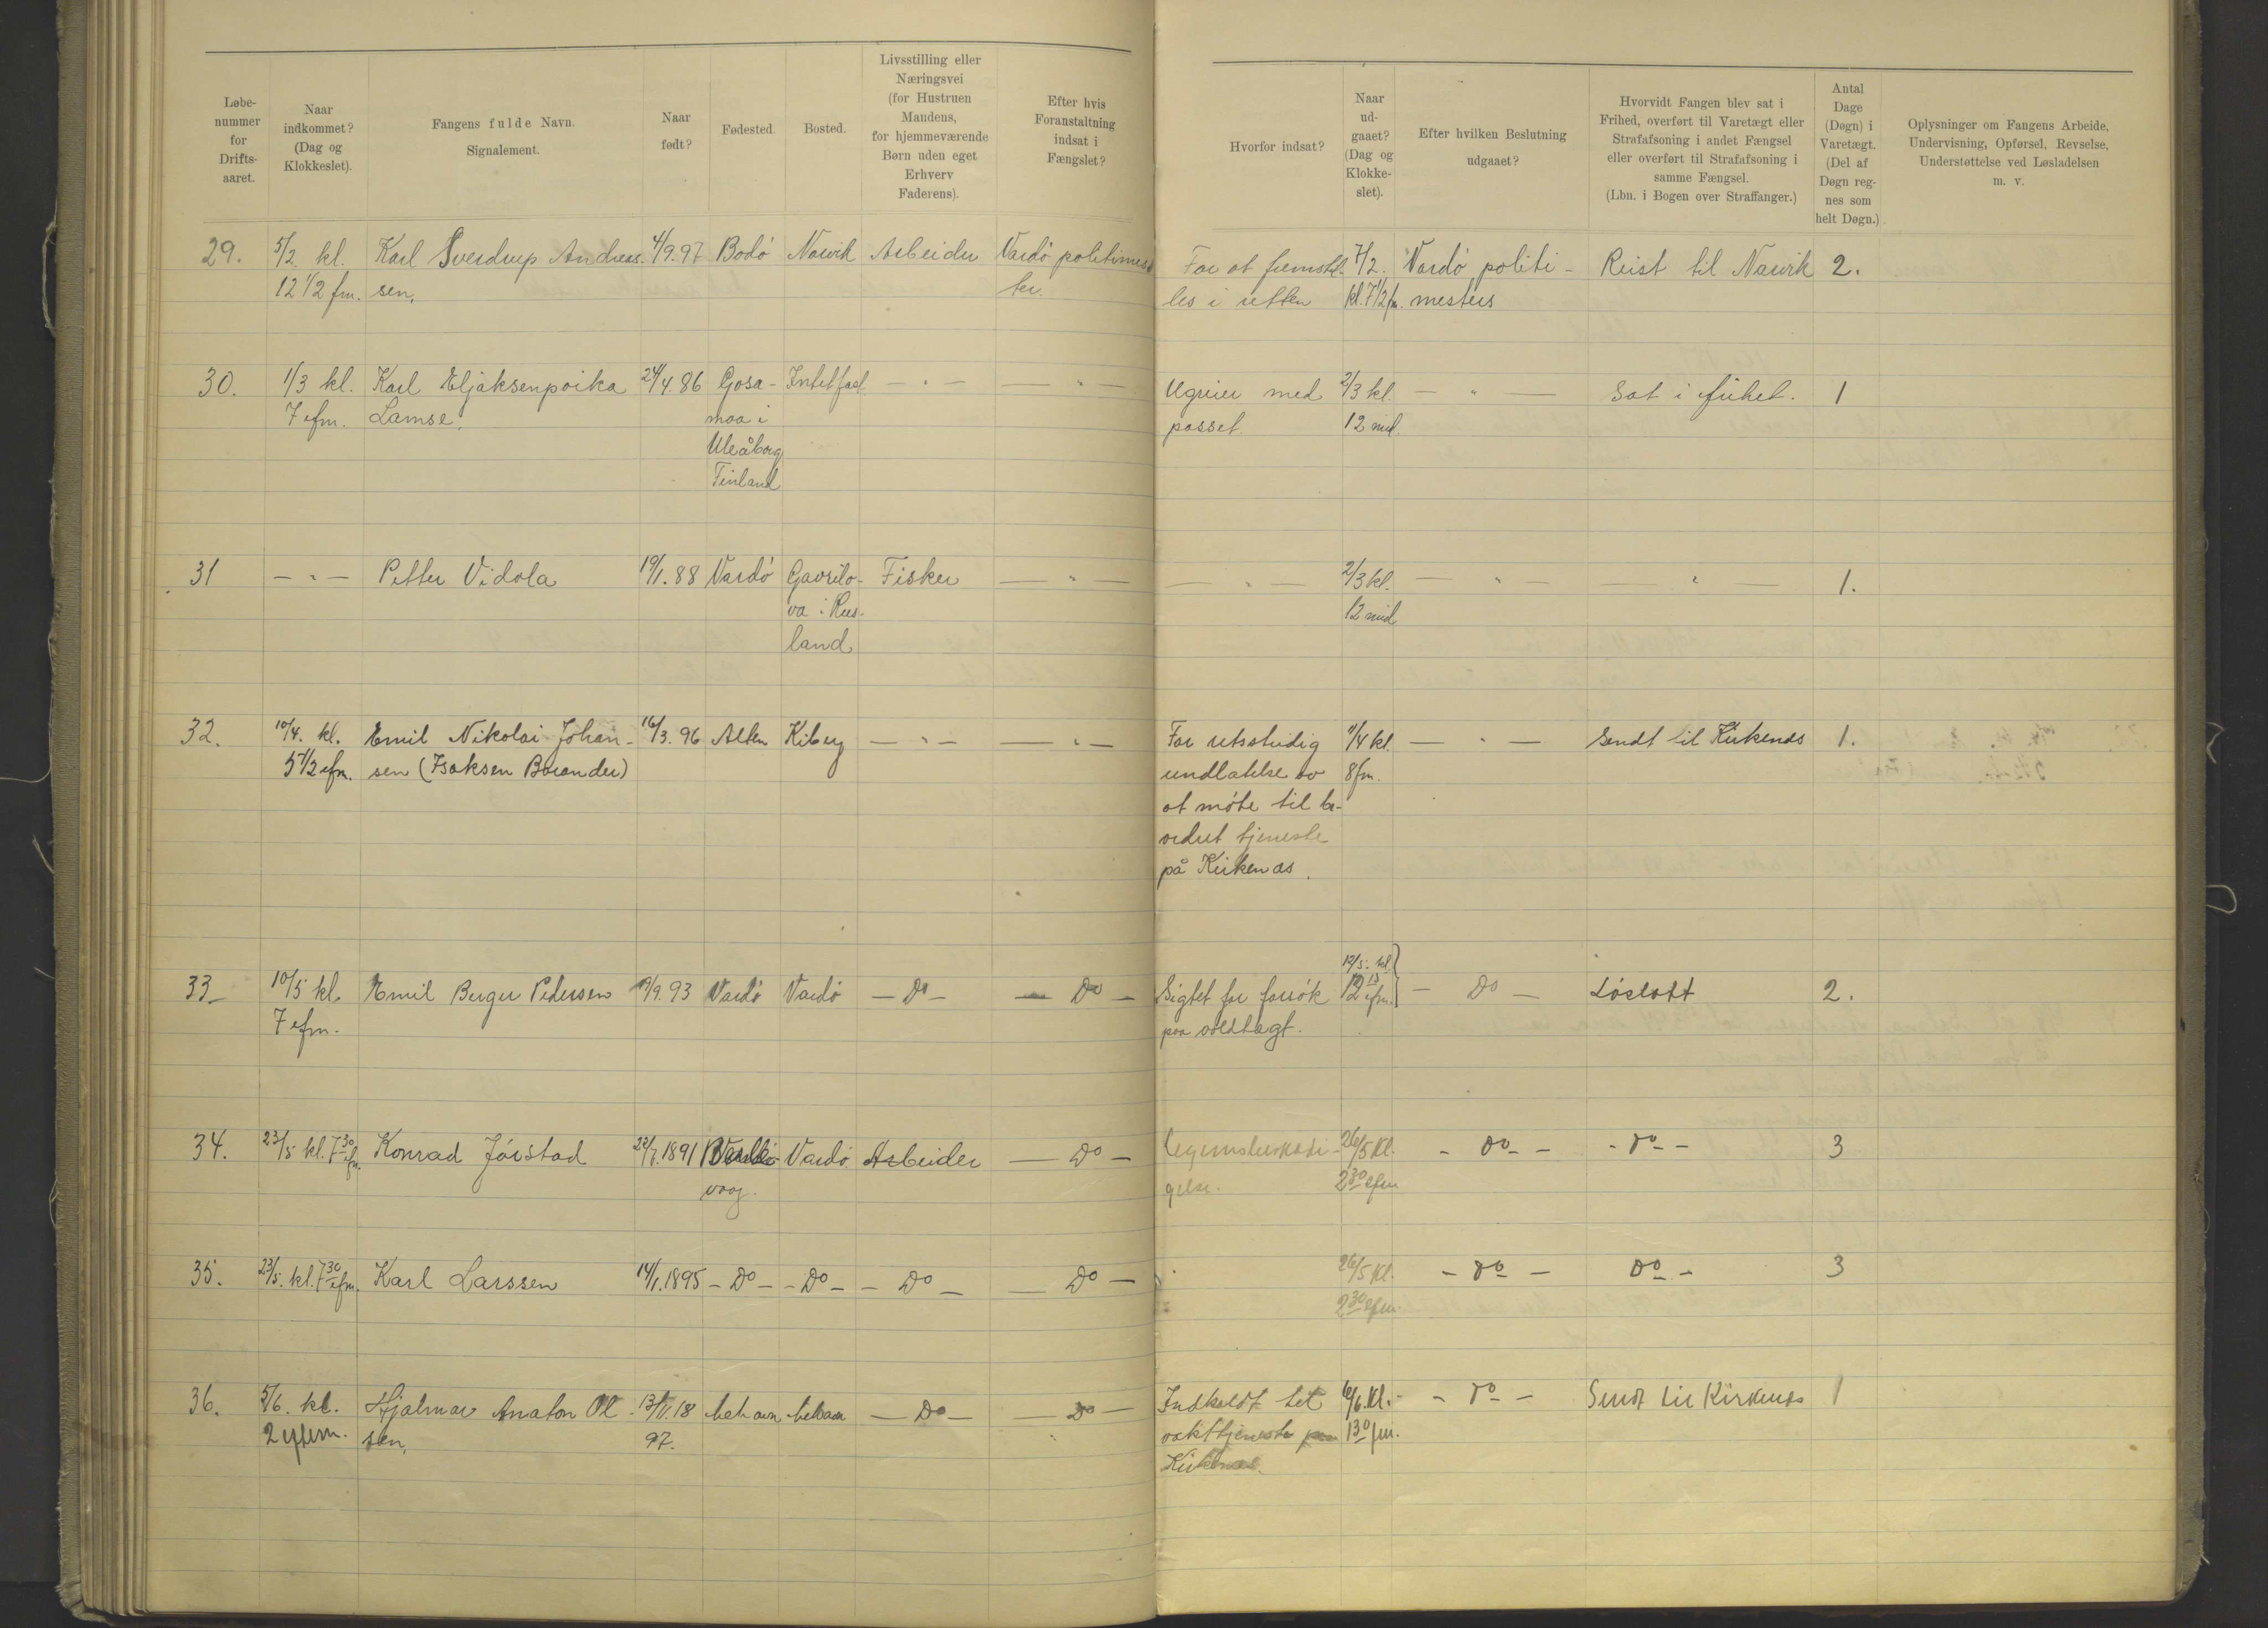 Løbe-
nummer
for
Drifts-
aaret.
Naar
indkommet?
(Dag og
Klokkeslet).
Fangens fulde Navn.
Signalement.
Naar
født?
Fødested.
Bosted.
Livsstilling eller
Næringsvei
(for Hustruen
Mandens,
for hjemmeværende
Børn uden eget
Erhverv
Faderens).
Efter hvis
Foranstaltning
indsat i
Fængslet?
Hvorfor indsat?
Naar
ud-
gaaet?
(Dag og
Klokke-
slet).
Efter hvilken Beslutning
udgaaet?
Hvorvidt Fangen blev sat i
Frihed, overført til Varetægt eller
Strafafsoning i andet Fængsel
eller overført til Strafafsoning i
samme Fængsel.
(Lbn. i Bogen over Straffanger.)
Antal
Dage
(Døgn) i
Varetægt.
(Del af
Døgn reg-
nes som
helt Døgn.)
Oplysninger om Fangens Arbeide,
Undervisning, Opførsel, Revselse,
Understøttelse ved Løsladelsen
m. v.
29. 5/2. kl. Karl Sverdrup Andreas- 4/9.97 Bodö Narvik Arbeider Vardö politimes- For at fremstil- 7/2. Vardö politi- Reist til Narvik 2.
12 1/2 fm. sen. ter. les i retten kl. 7 1/2 fm. mesters
30. 1/3 kl. Karl Eljaksenpoika 24/4.86 Gosa- Intet fast — " — — " — Ugreier med 2/3 kl. — " — Sat i frihet. 1
7 efm. Lamse. moa i passet. 12 mid.
Uleåborg
Finland
31 — " — Petter Vidola 19/1.88 Vardö Gavrilo- Fisker — " — — " — 2/3 kl. — " — — " — 1.
va i Rus- 12 mid
land
32. 10/4. kl. Emil Nikolai Johan- 16/3.96 Alten Kiberg — " — — " — For retsstridig 11/4 kl. — " — Sendt til Kirkenæs 1.
5 1/2 efm. sen (Isaksen Borander) undlatelse av 8 fm.
at möte til be-
ordret tjeneste
på Kirkenæs.
33 10/5 kl. Emil Berger Pedersen 19/9.93 Vardö Vardö — Do — — Do — Sigtet for forsök 12/5. kl. 12 15 efm. — Do — Löslatt 2.
7 efm. paa voldtægt.
34. 23/5 kl. 7 30 efm. Konrad Jörstad 22/7.1891 Vardö Arbeider — Do — legemsbeskadi- 26/5 Kl. — Do — — Do — 3
vaag. gelse. 2 30 efm
35. 23/5. kl. 7 30 efm. Karl Larssen 14/1.1895 — Do — — Do — — Do — — Do — 26/5 Kl. — Do — Do — 3
2 30 efm.
36. 5/6. kl. Hjalmar Anaton Ol- 13/11.18 — Do — — Do — Indkaldt til 6/6. Kl. — Do — Sendt til Kirkenæs 1
2 efterm. sen. 97. vakttjeneste paa 1 30 fm.
Kirkenæs.